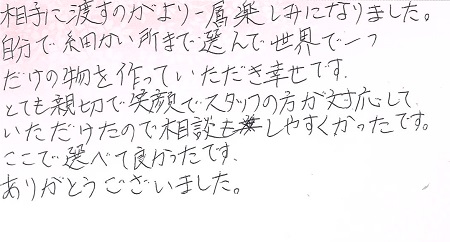 相手に渡すのがより一層楽しみになりました。
自分で細かい所まで選んで世界で一つ
だけの物を作っていただき幸せです.
とても親切で笑顔でスタッフの方が対応して
いただけたので相談もしやすくかったです。
ここで選べて良かったです.
ありがとうございました。